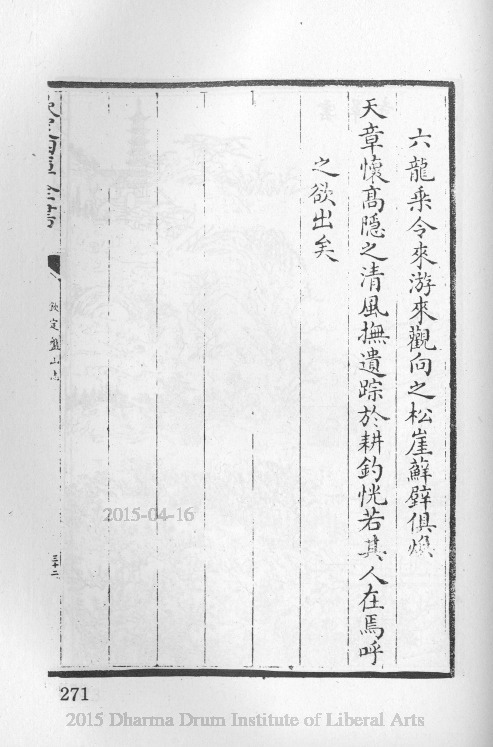 六龍乘令來游來觀向之松崖蘚壁俱煥
天章懷高隱之清風撫遺踪於耕釣恍若其人在焉呼
之欲出矣
欽定四庫全書
欽定盤山志
三十二
2015-04-16
271
2015 Dharma Drum Institute of Liberal Arts